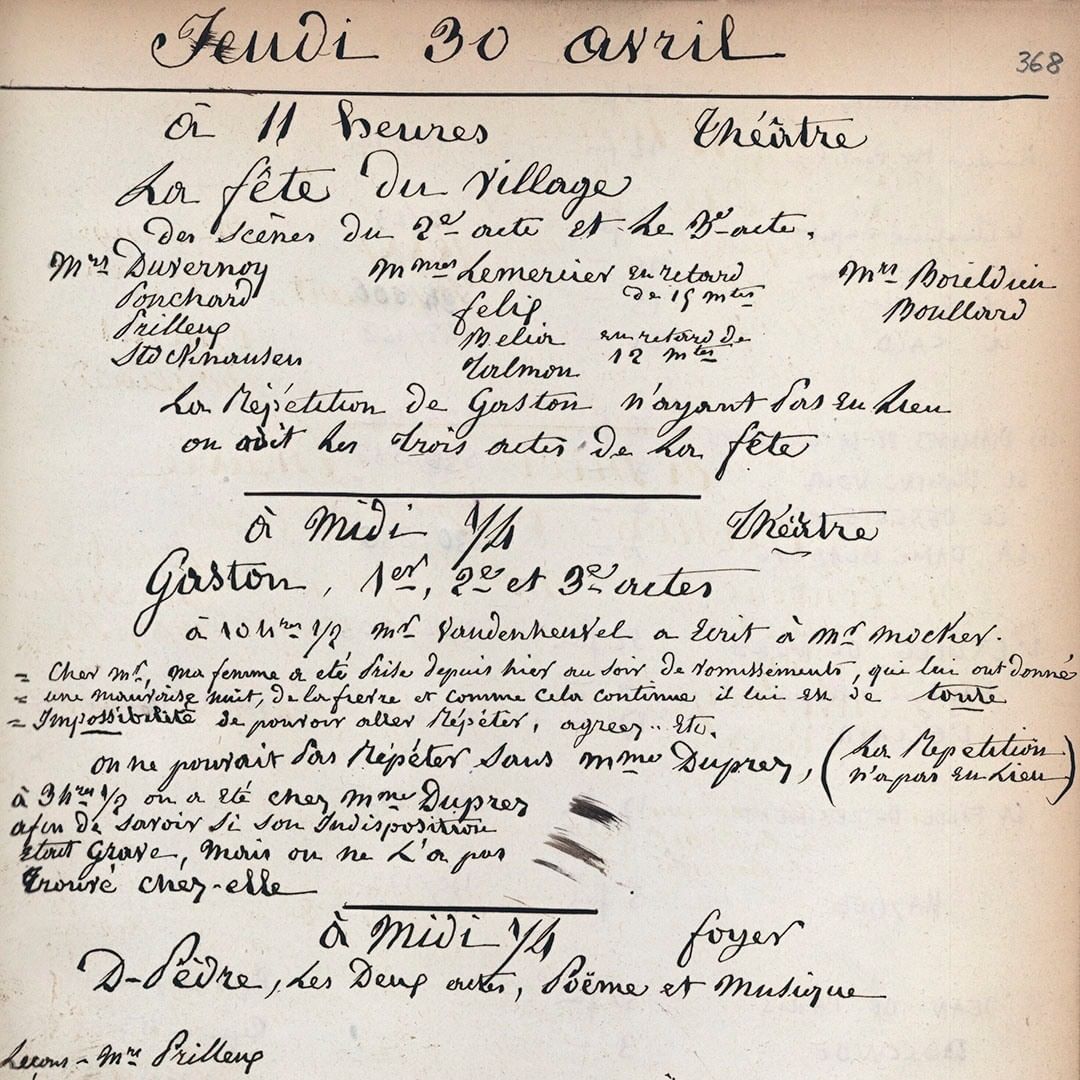 Jeudi 30 avril
368
à 11 heures Théâtre
La fête du village
des scènes du 2e acte et le 3e acte.
Mrs Duvernoy Mmes Lemercier en retard de 15 mtes Mrs Boieldieu
Ponchard Félix Boullard
Prilleux Bélia en retard de 12 mtes
Stockhausen Talmon
La Répétition de Gaston n'ayant pas eu lieu
on a dit les trois actes de la fête
à Midi 1/4 Théâtre
Gaston, 1er, 2e et 3e actes
à 10 hres 1/2 Mr Vandenheuvel a écrit à Mr Mocker.
= Cher Mr, ma femme a été prise depuis hier au soir de vomissements, qui lui ont donné
= une mauvaise nuit, de la fievre et comme cela continue il lui est de toute
= Impossibilité de pouvoir aller Répéter, agreez.. Etc.
on ne pouvait pas Répéter sans Mme Duprez, (La Repetition n'a pas eu lieu)
à 3 hres 1/2 on a été chez Mme Duprez
afin de savoir si son Indisposition
etait Grave, Mais on ne l'a pas
Trouvé chez-elle
à Midi 1/4 foyer
D-Pèdre, les Deux actes, Poëme et Musique
Leçons - Mrs Prilleux